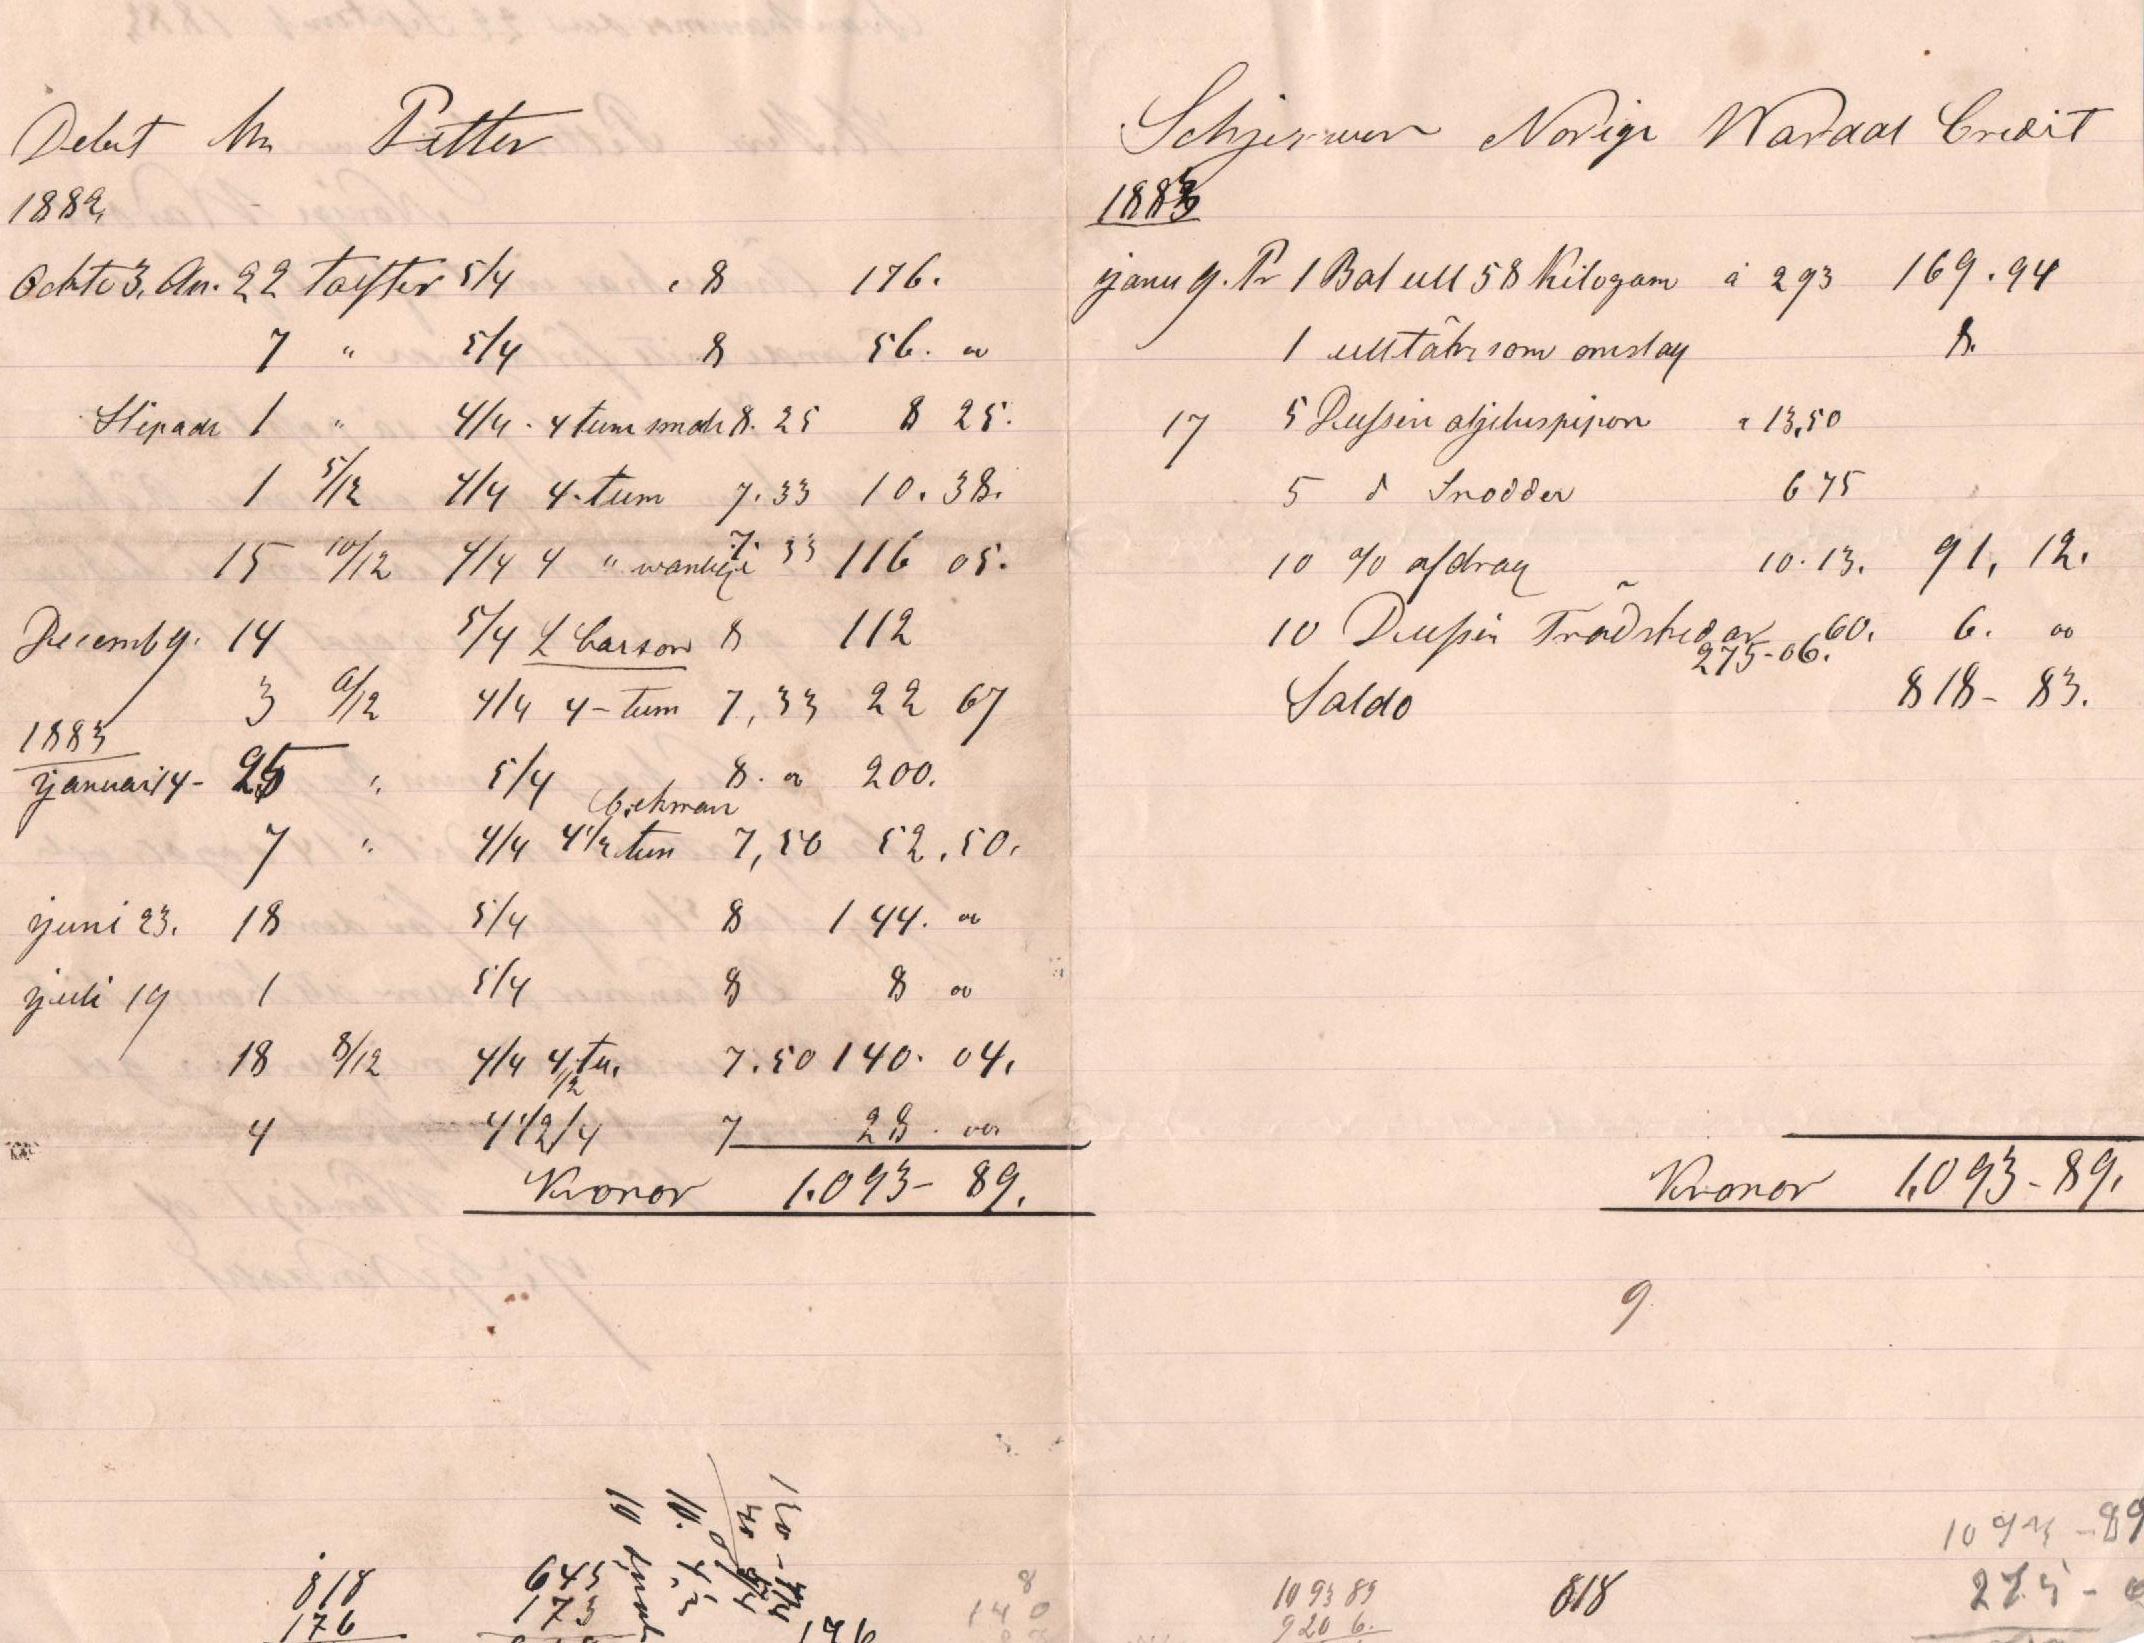 Debet Petter
1882
Ockto 3. An. 22 tolfter 5/4 " 8 176.
7 " 5/4 8 56. oo
Slipade 1 " 4/4 - 4 tum smale 8. 25 8 25.
1 5/12 4/4 4-tum 7. 33 10. 38.
15 10/12 4/4 4 " wanlige 7. 33 116 05.
Decemb 9. 14 5/4 L Carson 8 112
3 4/4 4-tum 7, 33 22 67
1883
januari 14- 25 " 5/4 8. oo 200.
7 " 4/4 4 1/2 tum 7, 50 52. 50.
juni 23. 18 5/4 8 144. oo
juli 19 1 5/4 8 8 oo
18 8/12 4/4 4 1/2 tu. 7. 50 140. 04.
4 4 1/2/4 7 28. oo
Kronor 1.093- 89.
818
176
645
173
176
Norige Wardal Credit
1883
janu 9. Pr 1 Bal ull 58 Kilogam á 293 169. 94
1 som omslag 8.
17 5 Dussin " 13,50
5 d Snodder 6 75
10 % afdrag 10. 13. 91, 12.
10 Dussin 60. 6. oo
275-06.
Saldo 818- 83.
Kronor 1.093-89.
9
8
140
1093 89
920 6.
818
1093 - 89
275 -